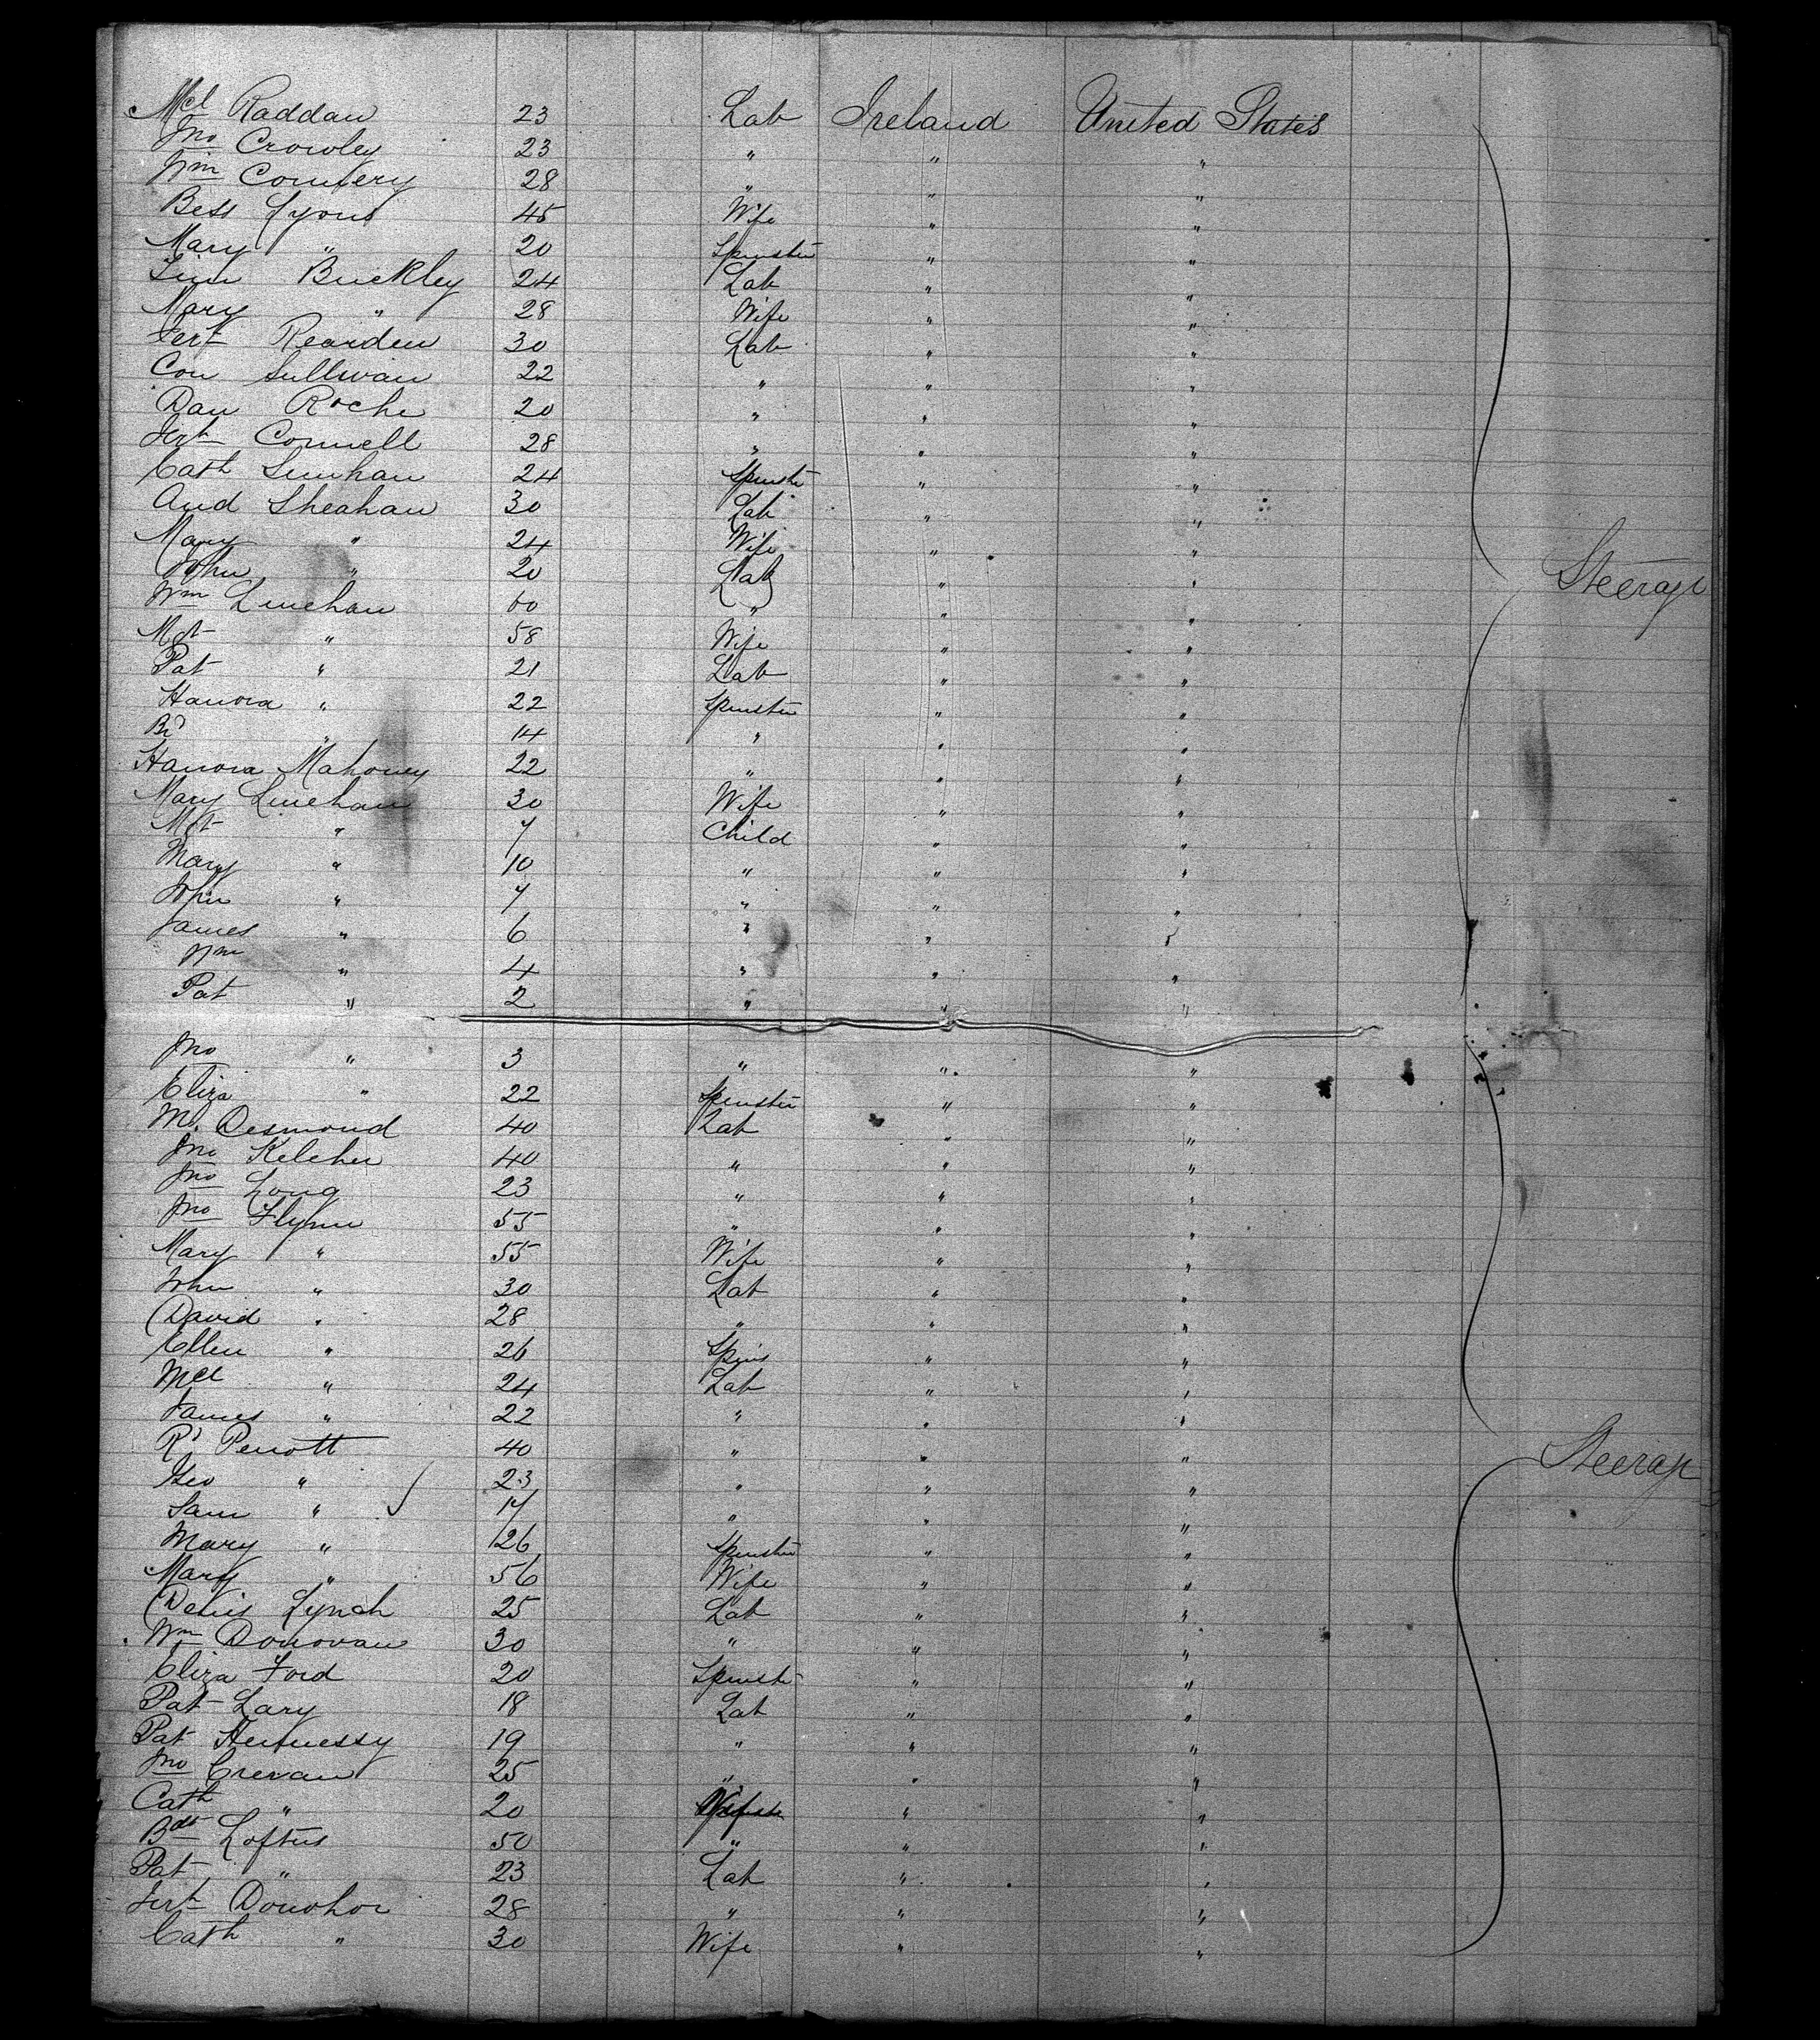 Mcl Raddan 23 Lab Ireland United States
Jno Crowley 23 " " "
Wm 28 " " "
Bess Lyons 45 Wife " "
Mary " 20 Spinster " "
Buckley 24 Lab " "
Mary " 28 Wife " "
Jerh Rearden 30 Lab " "
Con Sullivan 22 " " "
Dan Roche 20 " " "
Jerh Connell 28 " " "
Cath 24 Spinstr " "
And Sheahan 30 Lab " "
Mary " 24 Wife " "
John " 20 Lab " " Steerage
Wm Linehan 60 " " "
Mgt " 58 Wife " "
Pat " 21 Lab " "
Hanora " 22 Spinster " "
Bi " 14 " " "
Hanora Mahoney 22 " " "
Mary Linehan 30 Wife " "
Mgt " 7 Child " "
Mary " 10 " " "
John " 7 " " "
James " 6 " " "
Wm " 4 " " "
Pat " 2 " " "
Jno " 3 " " "
Eliza " 22 Spinster " "
M. Desmond 40 Lab " "
Jno Keleher 40 " " "
Jno Long 23 " " "
Jno Flynn 55 " " "
Mary " 55 Wife " "
John " 30 Lab " "
David " 28 " " "
Ellen " 26 Spins " "
Mcl " 24 Lab " "
James " 22 " " "
Rd Perrott 40 " " " Steerage
Geo " 23 " " "
Sam " 17 " " "
Mary " 26 Spinster " "
Mary " 56 Wife " "
Denis Lynch 25 Lab " "
Wm Donovan 30 " " "
Eliza Ford 20 Spinstr " "
Pat Lary 18 Lab " "
Pat Hennessy 19 " " "
Jno Crevan 25 " " "
Cath " 20 " "
Bdt Loftus 50 " " "
Pat " 23 Lab " "
Jerh Donohoe 28 " " "
Cath " 30 Wife " "